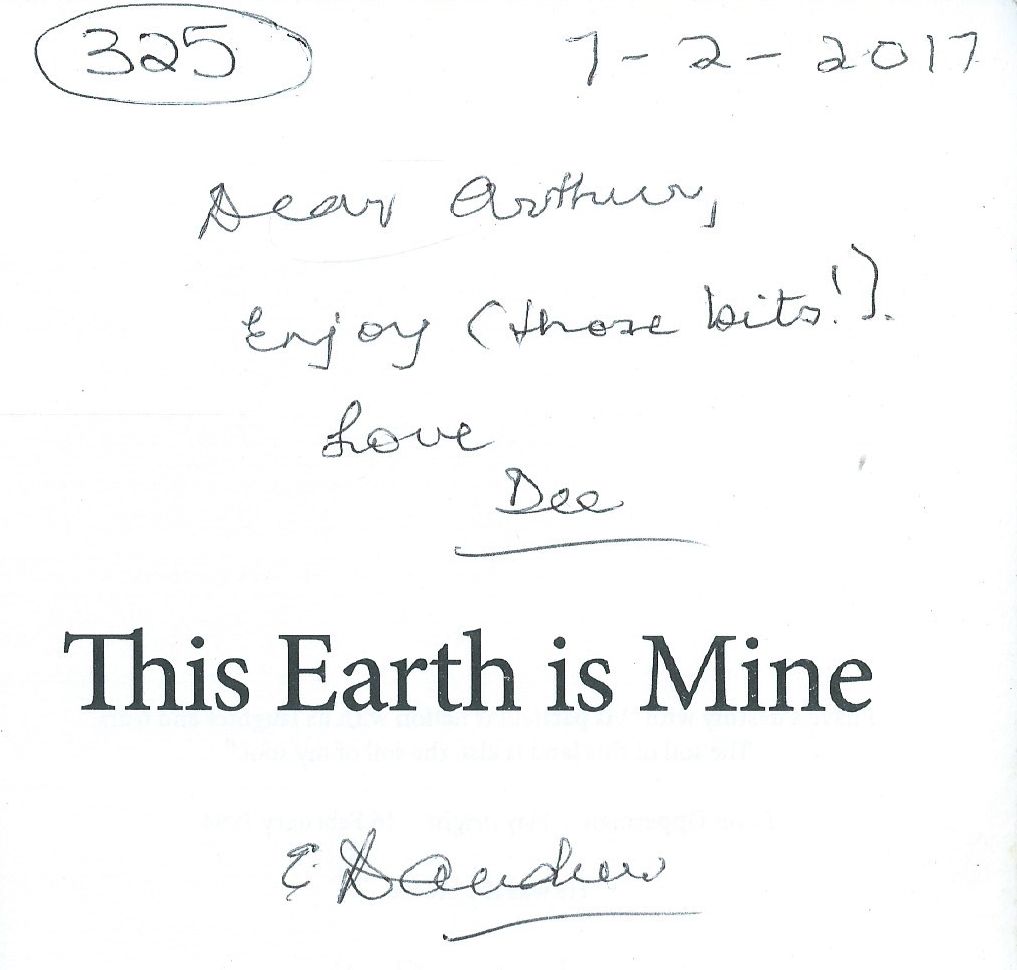 325
7-2-2017
Dear Arthur,
Enjoy (those bits!).
Love
Dee
This Earth is Mine